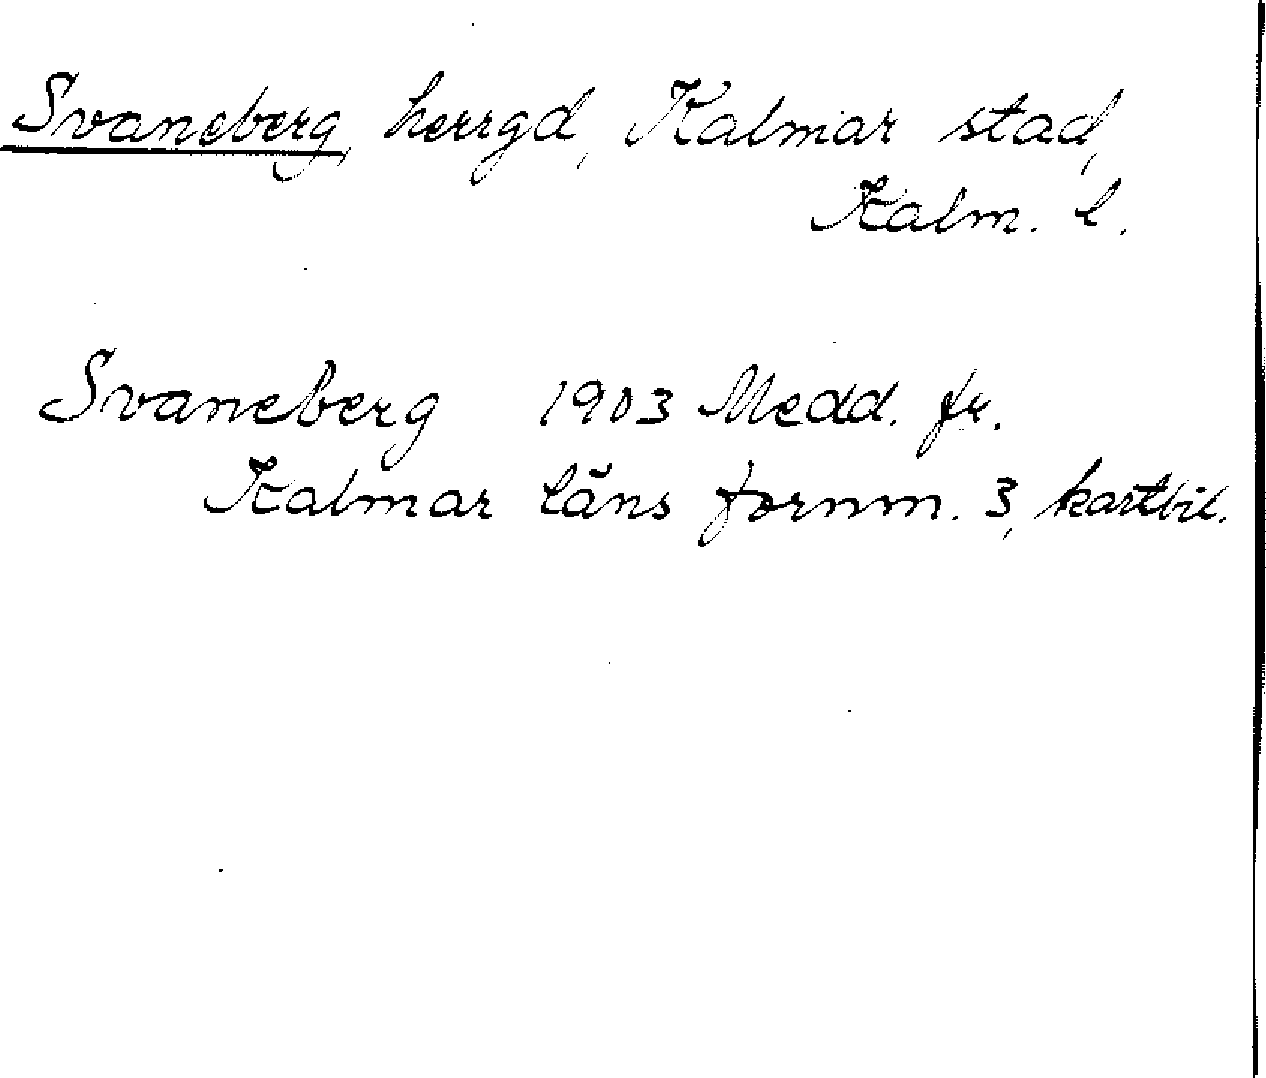 Svaneberg, herrgd, Kalmar stad,
Kalm. l.
Svaneberg 1903 Medd. fr.
Kalmar läns fornm. 3, kartbil.